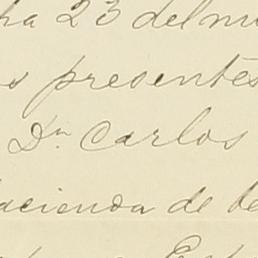 ha 23 del mi
s presentes
Dn Carlos
acienda de be